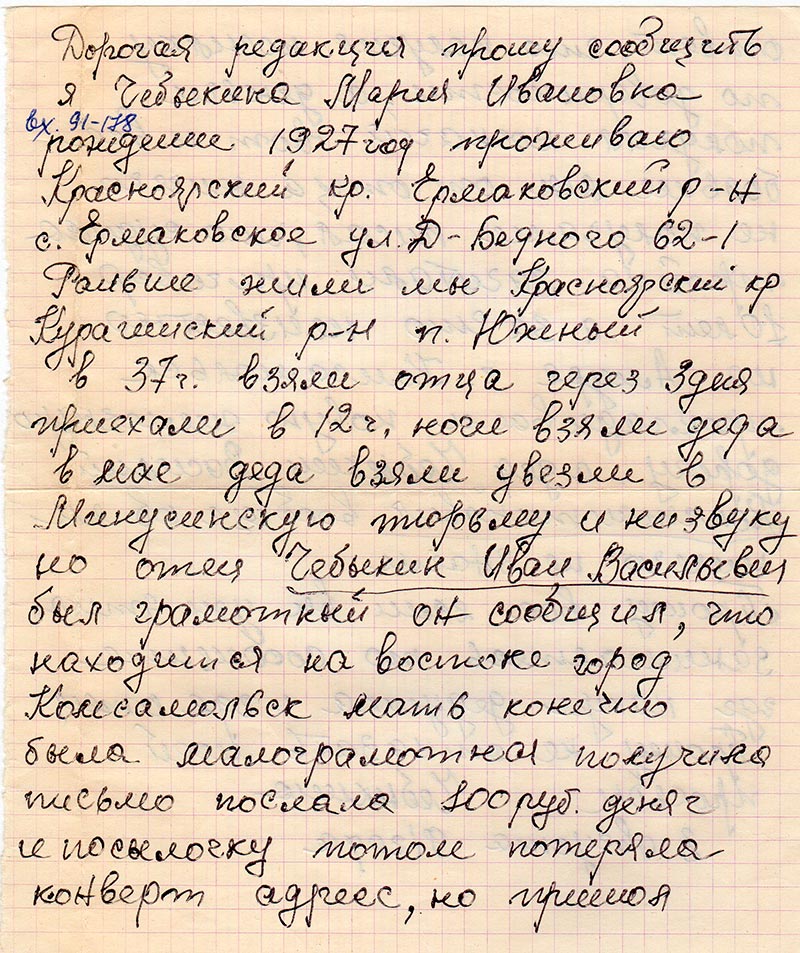 Дорогая редакция прошу сообщить
я Чебыкина Мария Ивановна
вх. 91-178
рождение 1927 год проживаю
Красноярский кр. Ермаковский р-н
с. Ермаковское ул. Д-Бедного 62-1
Раньше жили мы Красноярский кр
Курагинский р-н п. Южный
в 37г. взяли отца через 3 дня
приехали в 12 ч. ночи взяли деда
в мае деда взяли увезли в
Минусинскую тюрьму и ни звуку
но отец Чебыкин Иван Васильевич
был грамотный он сообщил, что
находится на востоке город
Комсамольск мать конечно
была малограмотная получила
письмо послала 100 руб. деняг
и посылочку потом потеряла
конверт адрес, но пришол